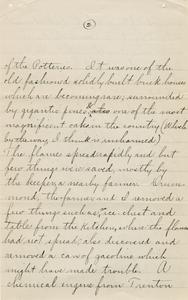 5
of the Potteries. It was one of the
old fashioned solidly built brick houses
which are becoming rare; surrounded
by gigantic pines & one of the most
magnificent oaks in the country (Which
by the way I think is unharmed)
The flames spread rapidly and but
few things were saved, mostly by
the keeper, a nearby farmer. Green
mond, the farmer, and I removed a
few things such as; ice chest and
table from the kitchen, where the flames
had not spread; also discovered and
removed a can of gasoline which
might have made trouble. A
chemical engine from Trenton